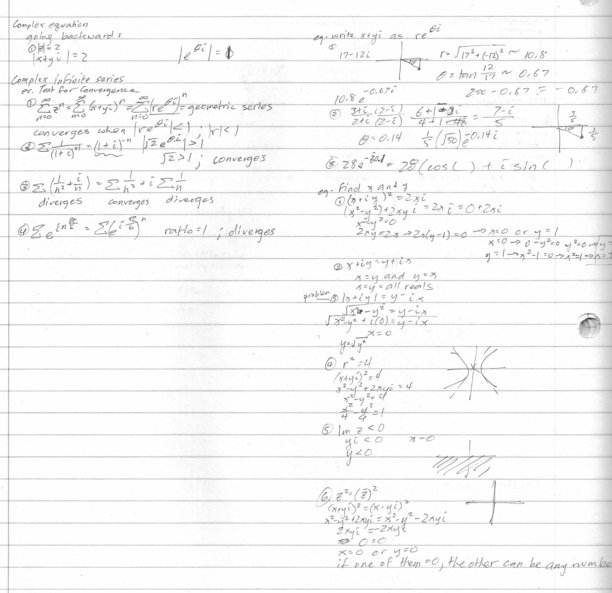 Complex equation
going backwards
① |z|=2
|x+yi| = 2
|e^θi| = 1
Complex Infinite series
ex. Test for Convergence
① Σ z^n = Σ (x+yi)^n = Σ (re^θi)^n = geometric series
n=0 n=0 n=0
converges when |re^θi| < 1 ; |r| < 1
② Σ 1/(1+i)^n = (1+i)^-n |√2 e^θi| > 1
√2 > 1 ; converges
③ Σ (1/n² + i/n) = Σ 1/n² + i Σ 1/n
diverges converges diverges
④ Σ e^(inπ/6) = Σ (e^(iπ/6))^n ratio=1 ; diverges
eg. write x+yi as re^θi
① 17-12i r = √(17²+(-12)²) ~ 10.8
θ = tan 12/17 ~ 0.67
10.8 e^-0.67i 2π - 0.67 = -0.67
② (3+i)(2-i)/(2+i)(2-i) = 7-i/5
θ = 0.14 1/5 (√50) e^-0.14i
1/5
③ = 28(cos( ) + i sin( )
eg. find x and y
① (x+iy)² = 2xi
(x²-y²) + 2xyi = 2xi = 0 + 2xi
x²-y²=0
2xy=2x → 2x(y-1)=0 → x=0 or y=1
x=0 → 0-y²=0 y²=0
y=1 → x²-1=0 → x²=1
② x+iy = y+ix
x=y and y=x
x=y = all reals
problem ③ |x+iy| = y-ix
√x²-y² = y-ix
√x²-y² + i(0) = y-ix
x=0
y=√y²
④ r²=4
(x+yi)²=4
x²-y²+2xyi=4
x²-y²=4
x²/4 - y²/4 = 1
⑤ Im z < 0
yi < 0 x=0
y<0
⑥ z² = (z̄)²
(x+yi)² = (x-yi)²
x²-y²+2xyi = x²-y²-2xyi
2xyi = -2xyi
0=0
x=0 or y=0
if one of them=0, the other can be any